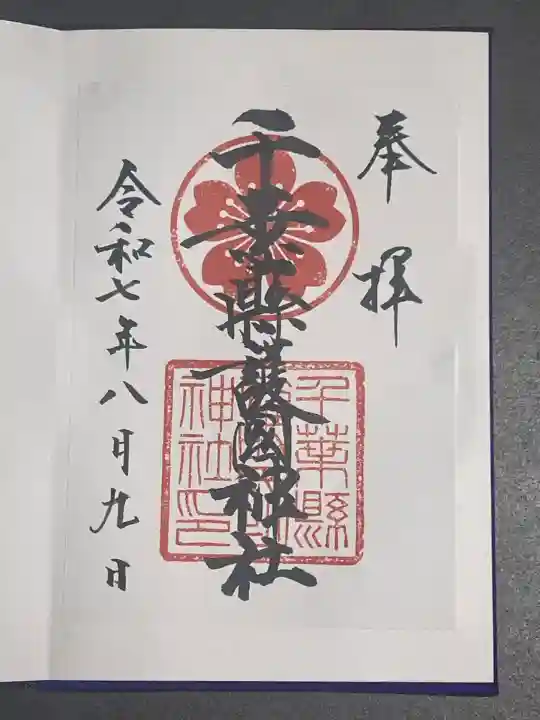 奉拝
千葉縣護国神社
千葉縣
神社印
令和七年八月九日